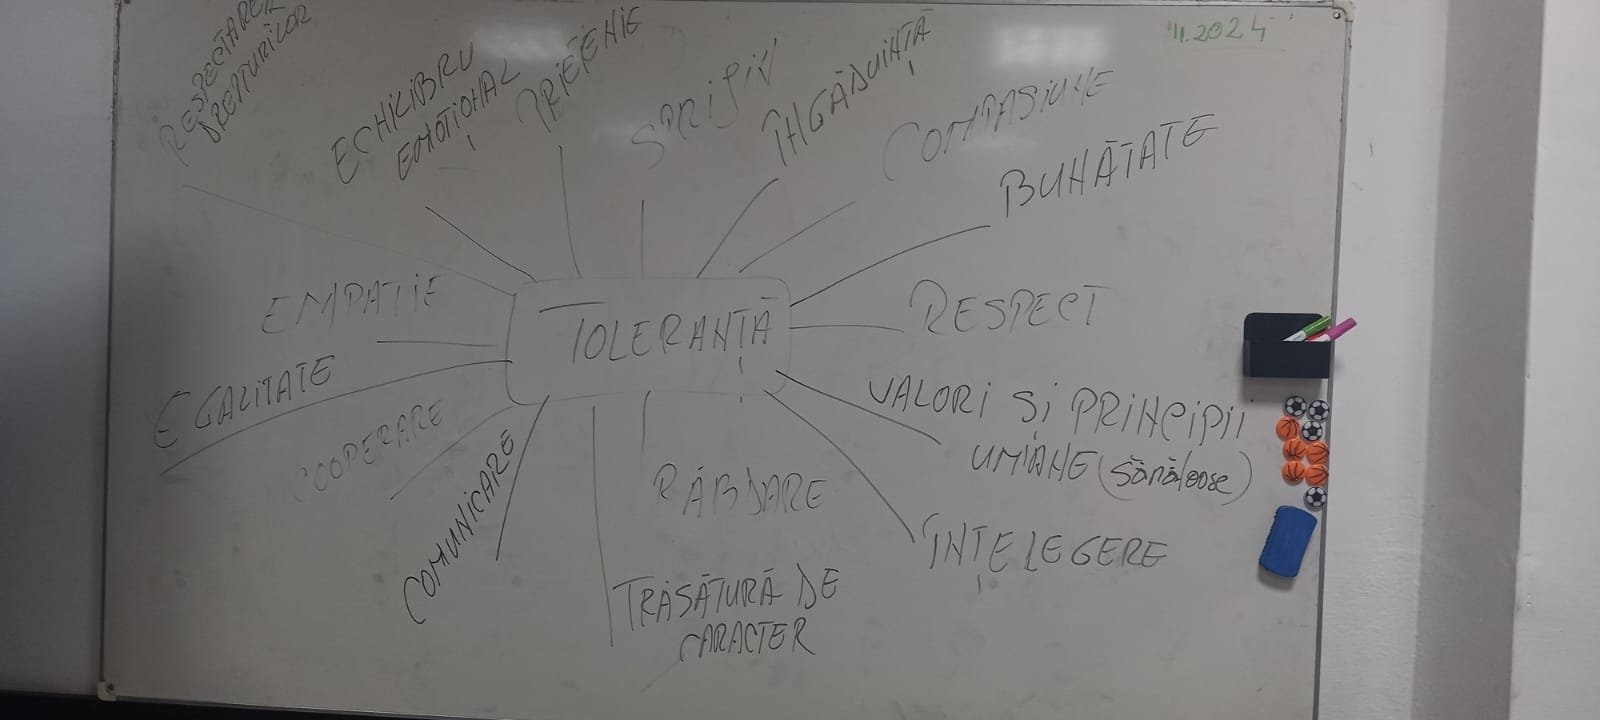 11.2024
RESPECTAREA
DREPTURILOR
ECHILIBRU
EMOȚIONAL
PRIETENIE
SPRIJIN
ÎNGĂDUINȚĂ
COMPASIUNE
BUNĂTATE
EMPATIE
TOLERANȚĂ
RESPECT
EGALITATE
VALORI SI PRINCIPII
UMANE (sănătoase)
COOPERARE
COMUNICARE
RĂBDARE
ÎNȚELEGERE
TRĂSĂTURĂ DE
CARACTER